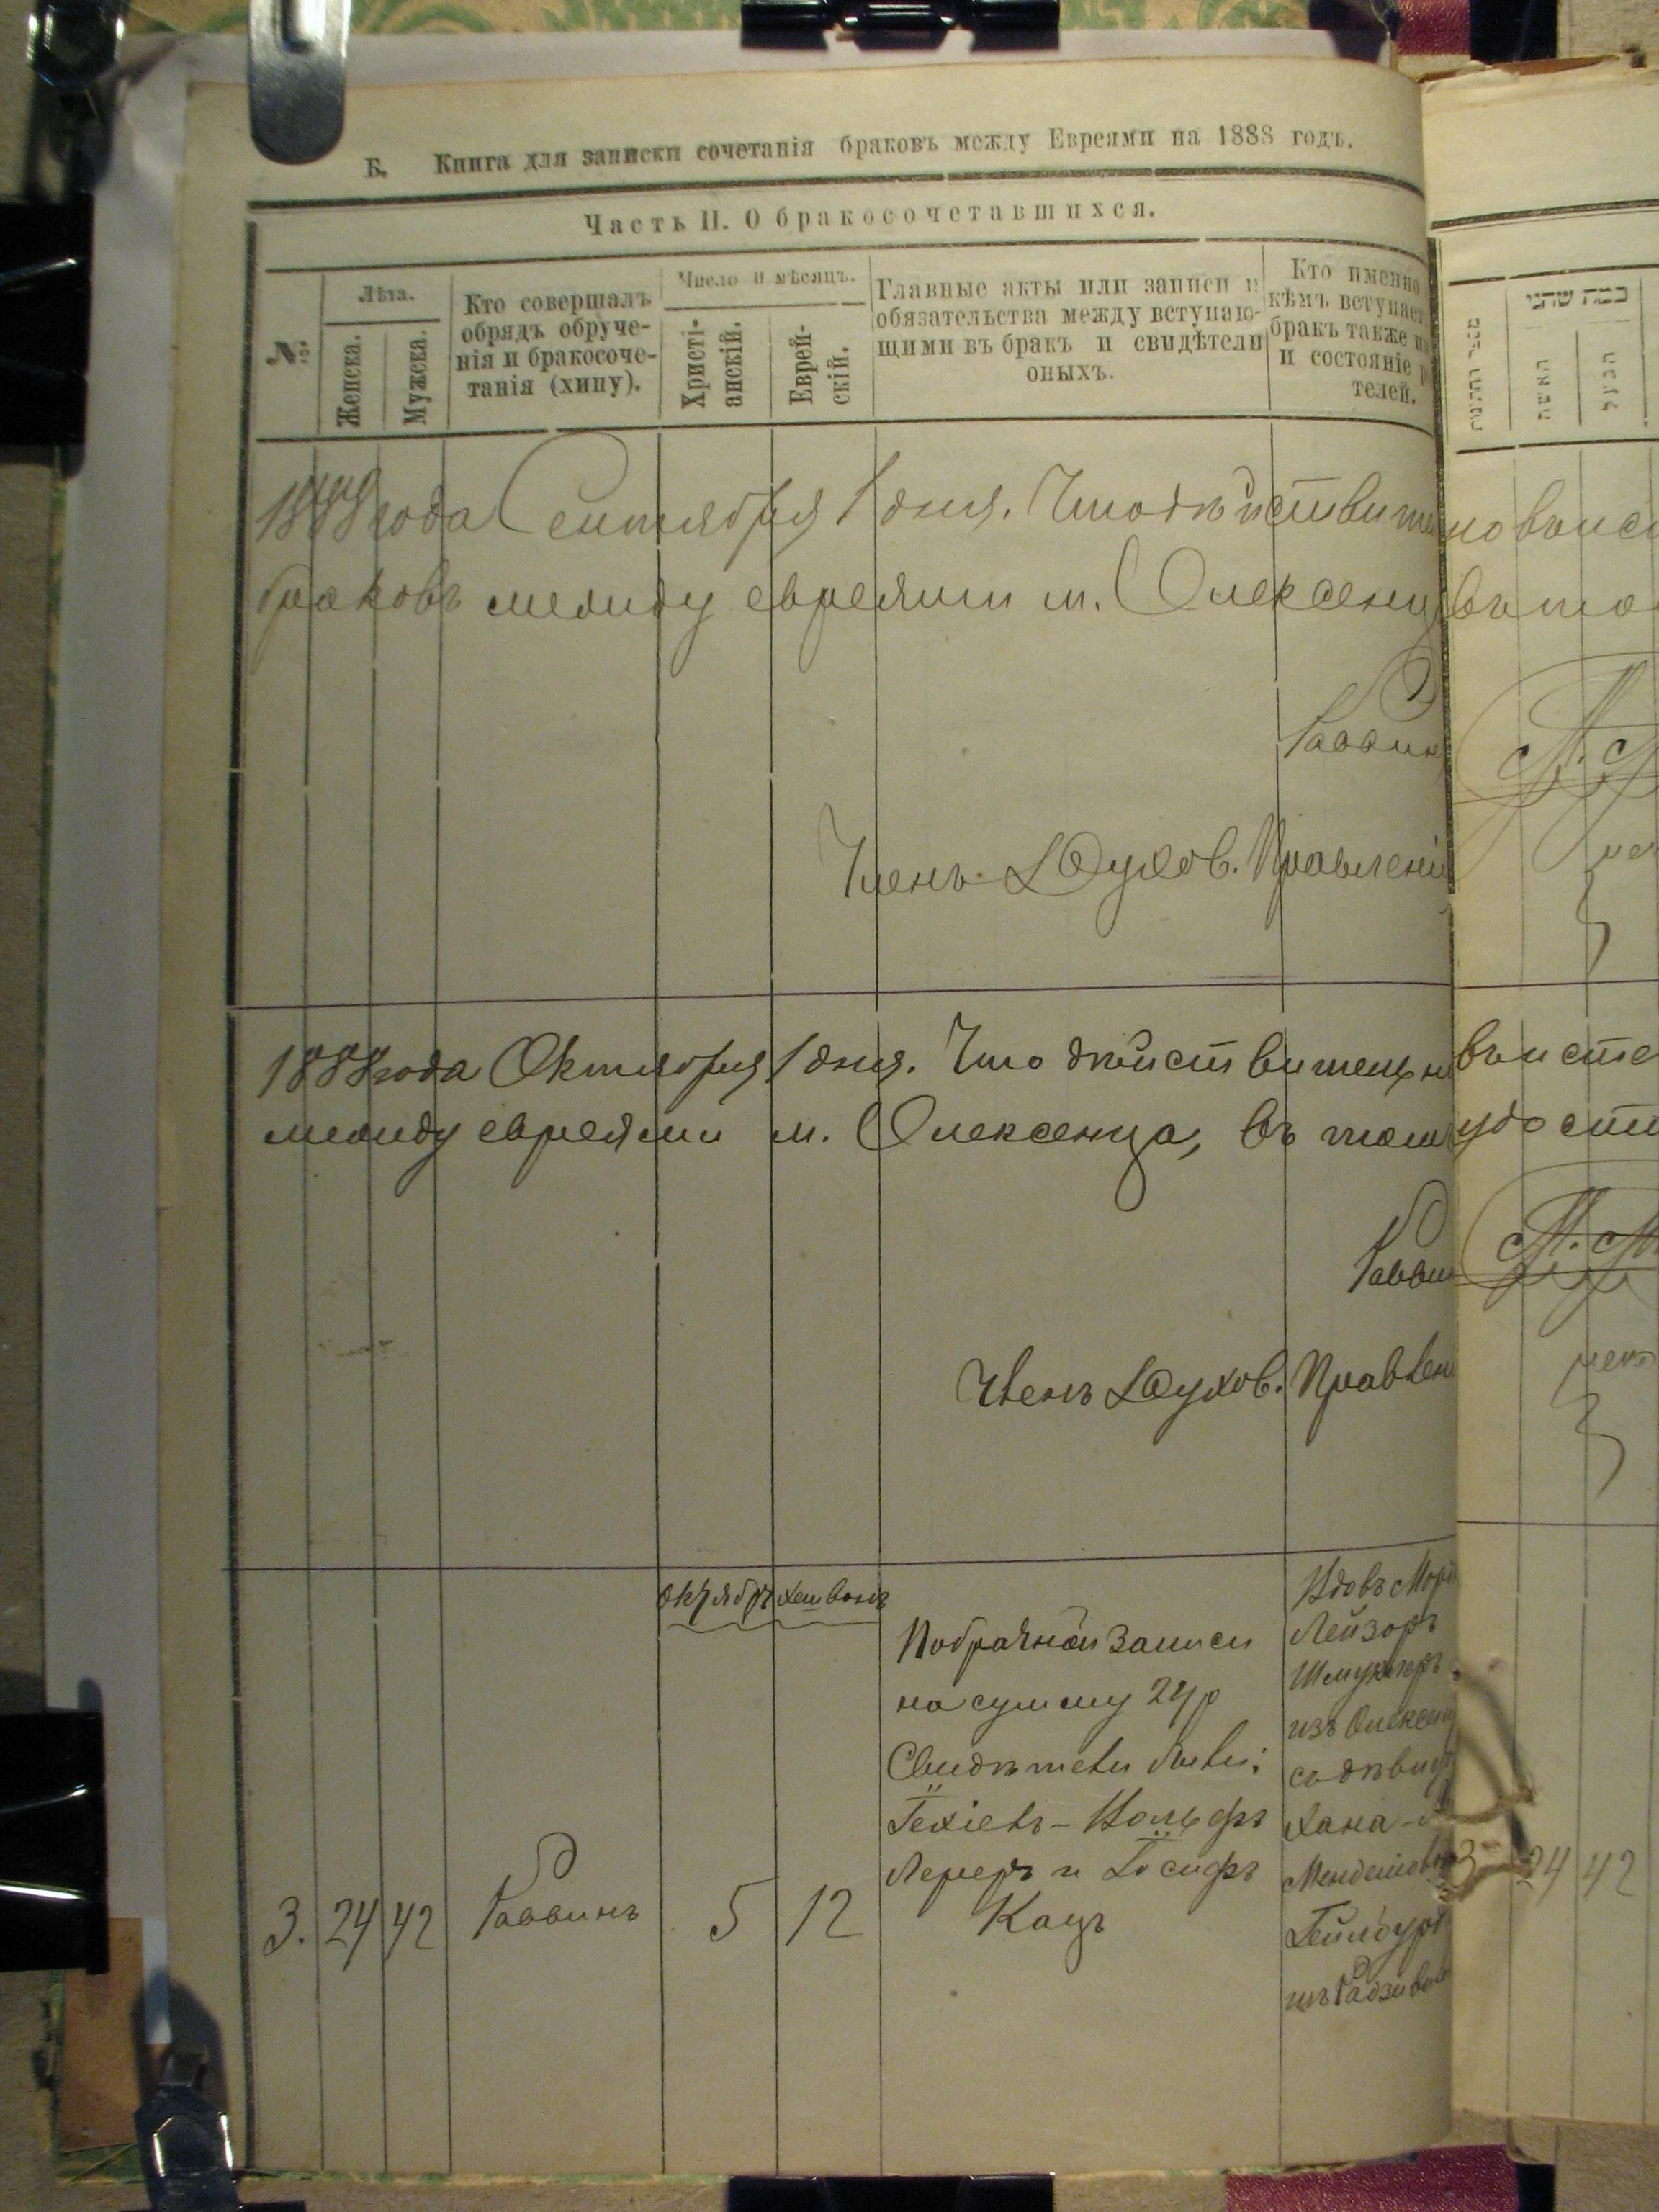 Б. Книга для записки сочетанія браковъ между Евреями на 1888 годъ.
Часть II. О бракосочетавшихся.
№
Лѣта.
Женска.
Мужска.
Кто совершалъ
обрядъ обруче-
нія и бракосоче-
танія (хипу).
Число и мѣсяцъ.
Христі-
анскій.
Еврей-
скій.
Главные акты или записи и
обязательства между вступаю-
щими въ бракъ и свидѣтели
оныхъ.
Кто именно
кѣмъ вступает
бракъ также и
и состояніе р
телей.
כמה שתני
האשה
1888 года Сентября 1 дня. Что дѣйствите
браковъ между евреями м. Олексенц
Раввин
Членъ Духов. Правлені
1888 года Октября 1 дня. Что дѣйствительн
между евреями м. Олексенца, въ том
Равви
Членъ Духов. Правлен
октябрь хешванъ
3. 24 42 Раввинъ 5 12
По брачной записи
на сумму 24 р
Свидѣтели были:
Іехіель-Вольфъ
Лернеръ и Іосифъ
Кацъ
Вдовъ Морд
Лейзоръ
Шмуклеръ
изъ Олексенц
съ дѣвиц
Хана-
Менделовн
Геймбур
изъ Радзивил
3 24 42